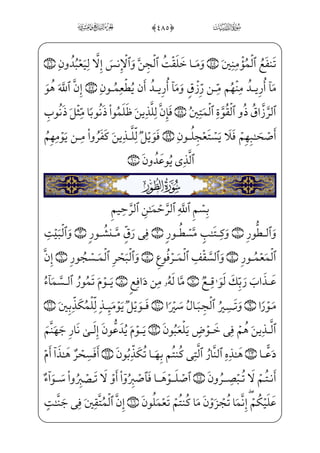 ﴿٤٨٥﴾
تَنفَعُ ٱلْمُؤْمِنِينَ ۝ وَمَا خَلَقْتُ ٱلْجِنَّ وَٱلْإِنسَ إِلَّا لِيَعْبُدُونِ ۝
مَآ أُرِيدُ مِنْهُم مِّن رِّزْقٍ وَمَآ أُرِيدُ أَن يُطْعِمُونِ ۝ إِنَّ ٱللَّهَ هُوَ
ٱلرَّزَّاقُ ذُو ٱلْقُوَّةِ ٱلْمَتِينُ ۝ فَإِنَّ لِلَّذِينَ ظَلَمُوا۟ ذَنُوبًا مِّثْلَ ذَنُوبِ
أَصْحَٰبِهِمْ فَلَا يَسْتَعْجِلُونِ ۝ فَوَيْلٌ لِّلَّذِينَ كَفَرُوا۟ مِن يَوْمِهِمُ
ٱلَّذِى يُوعَدُونَ ۝
سُورَةُ الطُّورِ
بِسْمِ ٱللَّهِ ٱلرَّحْمَٰنِ ٱلرَّحِيمِ
وَٱلطُّورِ ۝ وَكِتَٰبٍ مَّسْطُورٍ ۝ فِى رَقٍّ مَّنشُورٍ ۝ وَٱلْبَيْتِ
ٱلْمَعْمُورِ ۝ وَٱلسَّقْفِ ٱلْمَرْفُوعِ ۝ وَٱلْبَحْرِ ٱلْمَسْجُورِ ۝ إِنَّ
عَذَابَ رَبِّكَ لَوَٰقِعٌ ۝ مَّا لَهُۥ مِن دَافِعٍ ۝ يَوْمَ تَمُورُ ٱلسَّمَآءُ
مَوْرًا ۝ وَتَسِيرُ ٱلْجِبَالُ سَيْرًا ۝ فَوَيْلٌ يَوْمَئِذٍ لِّلْمُكَذِّبِينَ ۝
ٱلَّذِينَ هُمْ فِى خَوْضٍ يَلْعَبُونَ ۝ يَوْمَ يُدَعُّونَ إِلَىٰ نَارِ جَهَنَّمَ
دَعًّا ۝ هَٰذِهِ ٱلنَّارُ ٱلَّتِى كُنتُم بِهَا تُكَذِّبُونَ ۝ أَفَسِحْرٌ هَٰذَآ أَمْ
أَنتُمْ لَا تُبْصِرُونَ ۝ ٱصْلَوْهَا فَٱصْبِرُوٓا۟ أَوْ لَا تَصْبِرُوا۟ سَوَآءٌ
عَلَيْكُمْ ۖ إِنَّمَا تُجْزَوْنَ مَا كُنتُمْ تَعْمَلُونَ ۝ إِنَّ ٱلْمُتَّقِينَ فِى جَنَّٰتٍ